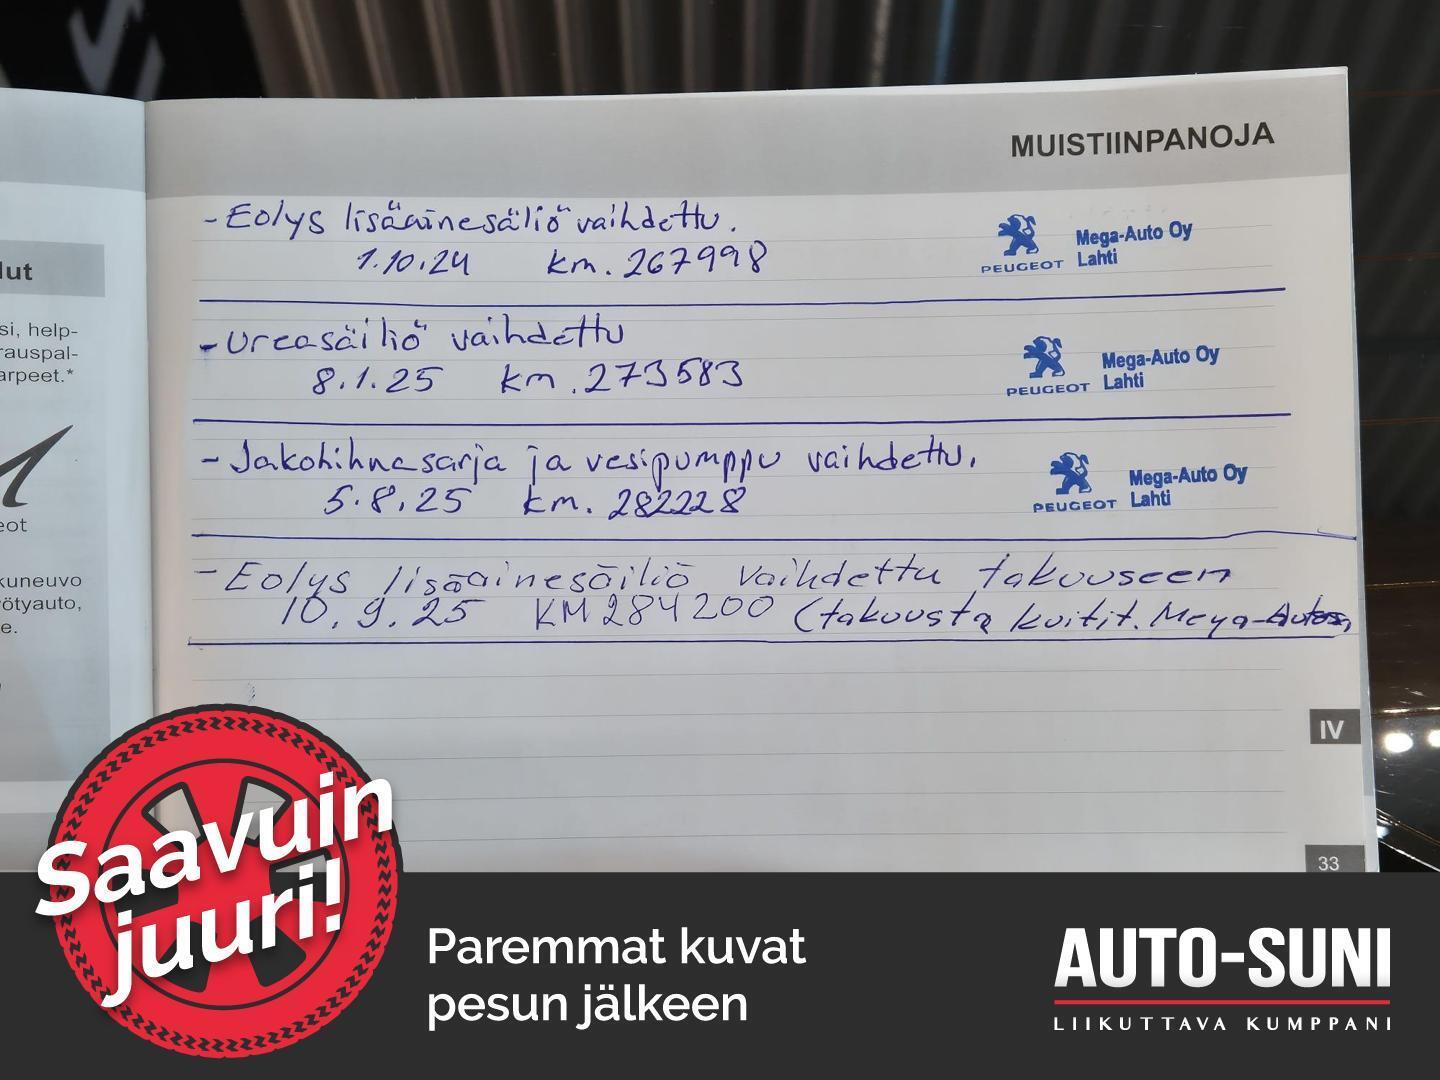 MUISTIINPANOJA
- Eolys lisäainesäliö vaihdettu.
1.10.24 km. 267998
PEUGEOT Mega-Auto Oy
Lahti
- Ureasäiliö vaihdettu
8.1.25 km. 273583
PEUGEOT Mega-Auto Oy
Lahti
- Jakohihnasarja ja vesipumppu vaihdettu.
5.8.25 km. 282228
PEUGEOT Mega-Auto Oy
Lahti
- Eolys lisäainesäiliö vaihdettu takuuseen
10.9.25 KM 284200 (takuusta kuitit. Mega-Autos
IV
33
lut
si, help-
rauspal-
arpeet.*
eot
kuneuvo
ötyauto,
e.
Saavuin
juuri!
Paremmat kuvat
pesun jälkeen
AUTO-SUNI
LIIKUTTAVA KUMPPANI